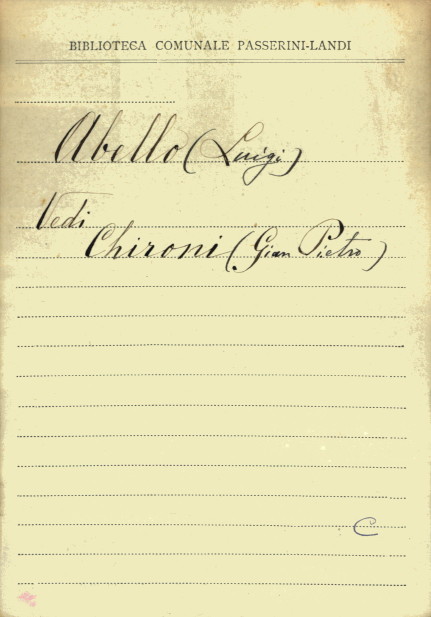 BIBLIOTECA COMUNALE PASSERINI-LANDI
Abello (Luigi)
Vedi
Chironi (Gian Pietro)
C